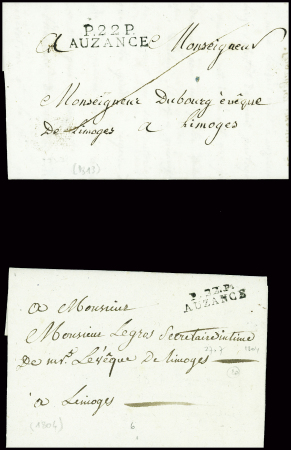 P.22.P.
AUZANCE
A Monseigneur
Monseigneur Dubourg évêque
De Limoges a Limoges
P.22.P.
AUZANCE
a Monsieur
Monsieur Legros Secretaire intime
De mr. Levêque De Limoges
à Limoges
6